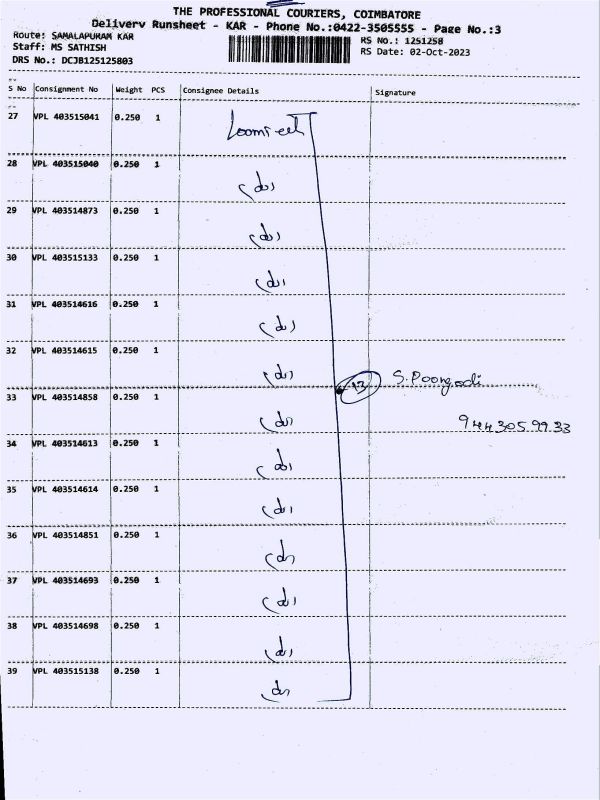 THE PROFESSIONAL COURIERS, COIMBATORE
Delivery Runsheet - KAR - Phone No.:0422-3505555 - Page No.:3
Route: SAMALAPURAM KAR
RS No.: 1251258
Staff: MS SATHISH
RS Date: 02-Oct-2023
DRS No.: DCJB125125803
S No Consignment No Weight PCS Consignee Details Signature
27 VPL 403515041 0.250 1
28 VPL 403515040 0.250 1
(do)
29 VPL 403514873 0.250 1
(do)
30 VPL 403515133 0.250 1
(do)
31 VPL 403514616 0.250 1
(do)
32 VPL 403514615 0.250 1
(do)
13 S. Poongodi
33 VPL 403514858 0.250 1
(do)
944305 99 33
34 VPL 403514613 0.250 1
(do)
35 VPL 403514614 0.250 1
(do)
36 VPL 403514851 0.250 1
(do)
37 VPL 403514693 0.250 1
(do)
38 VPL 403514698 0.250 1
(do)
39 VPL 403515138 0.250 1
(do)